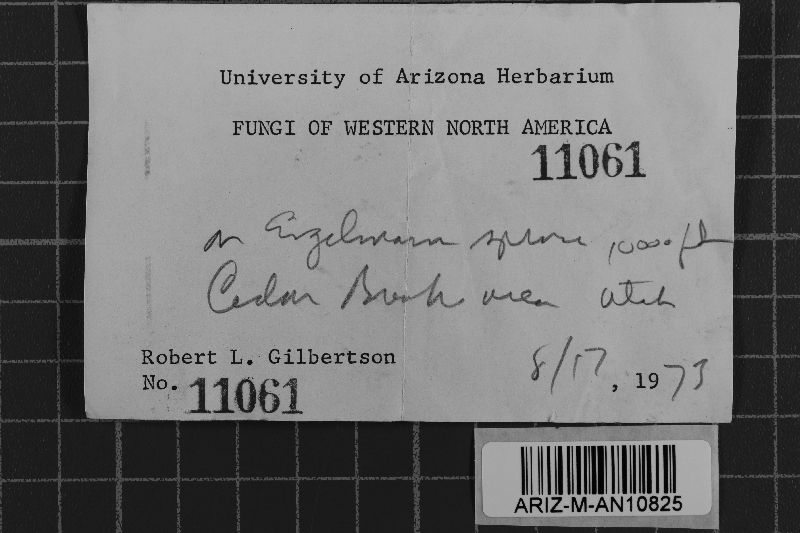 University of Arizona Herbarium
FUNGI OF WESTERN NORTH AMERICA
11061
on Engelmann spruce 10000 ft
Cedar Breaks area Utah
Robert L. Gilbertson
8/17, 1973
No. 11061
ARIZ-M-AN10825